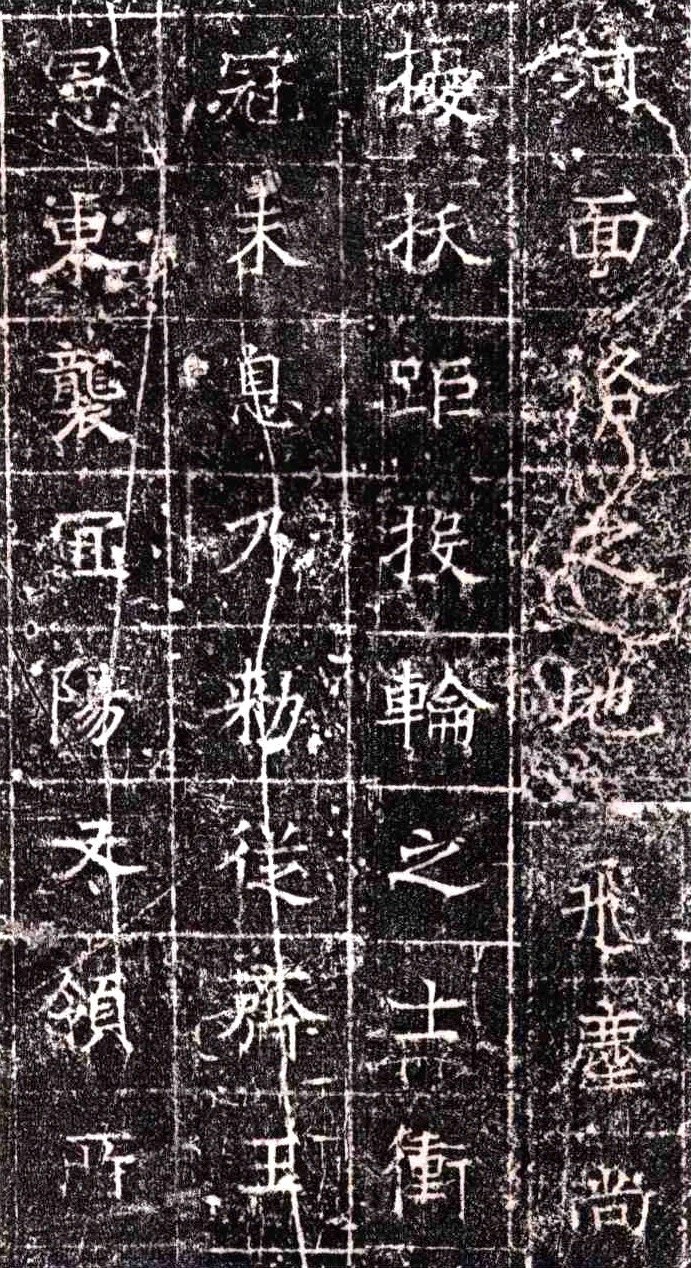 河面洛之地飛塵尚
擾扶距投輪之士衝
冠未息乃勑從齊王
憲東襲冝陽又領所